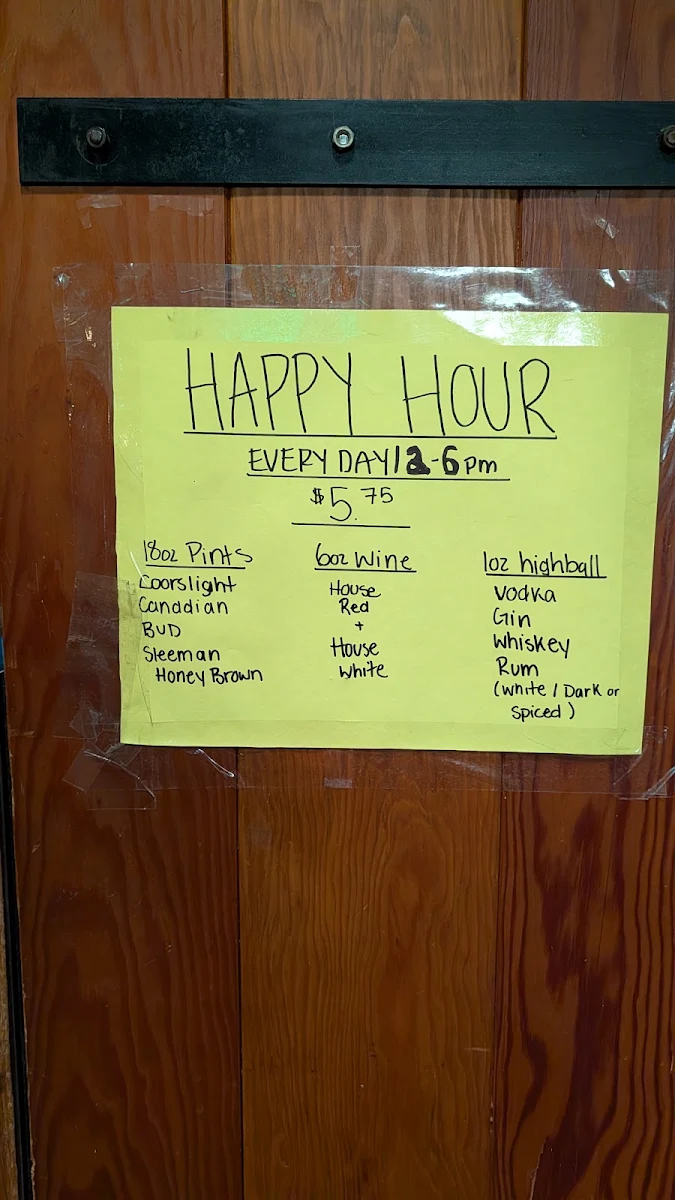 HAPPY HOUR
EVERY DAY 12-6pm
$5.75
18oz Pints
Coorslight
Canadian
BUD
Sleeman
Honey Brown
6oz Wine
House
Red
+
House
White
1oz highball
Vodka
Gin
Whiskey
Rum
(White / Dark or
Spiced)